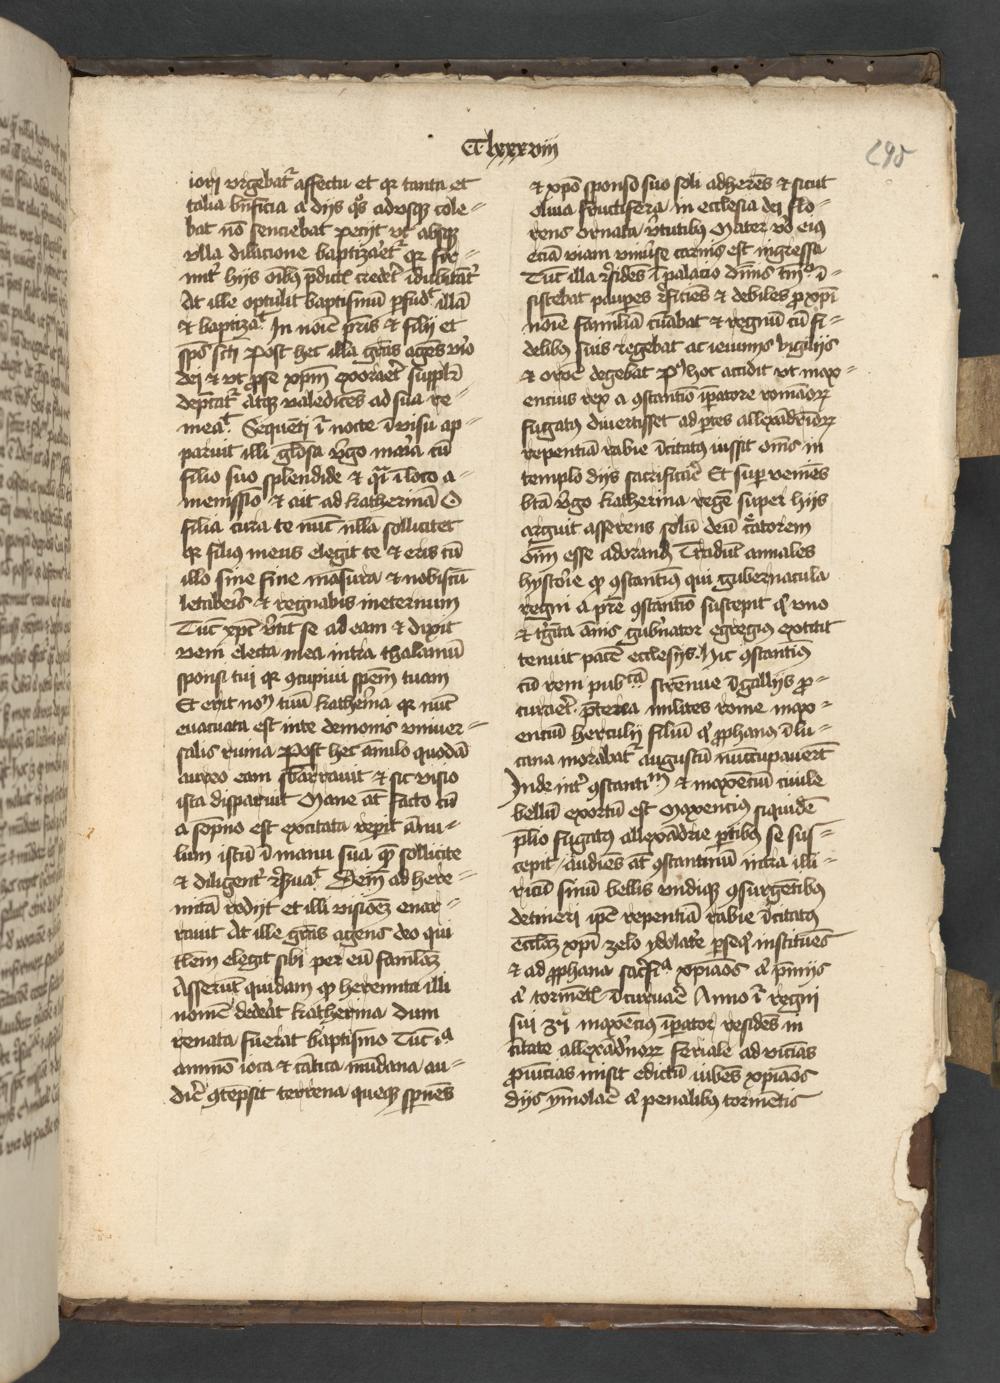 CClxxxviij
295
iori vrgebat᷑ affectu et qr tanta et
talia bn̄ficia a dijs q̄s adusqꝫ cole⸗
bat nō senciebat petijt vt absqꝫ
vlla dilacione baptizaret᷑ qr
hijs oībꝫ p̄dictꝭ crederet
At ille optulit baptismū illā
& baptizaꝭ In noīe pr̄is & filij et
sp̄s sc̄ti Post hec illa gr̄as agēs
dei & vt p se xp̄m exoraret supplr̄
depcat᷑ Atqꝫ valedicēs ad sua re⸗
meaꝭ Sequēti ī nocte ī visu ap⸗
paruit illi gl̄osa v̄go maria cū
filio suo splendide & ī loco a⸗
menissīo & ait ad katherinā O
filia cura te nūc nlla sollicitet
qr filiꝰ meus elegit te & eris cū
illo sine fine mansura & nobiscū
letaberis & regnabis ineternum
Tūc xp̄c v̄tit se ad eam & dixit
veni electa mea intra thalamū
sponsi tui qr ꝯcupiui spēm tuam
Et erit nom̄ tuū katherina qr nūc
euacuata est inte demonis vniuer⸗
salis ruina Post hec ānulo quodā
aureo eam sbarrauit & sic visio
ista disparuit Mane āt facto cū
a sōpno est excitata repit ānu⸗
lum istū ī manu sua q̄ sollicite
& diligent᷑ Dein̄ ad here⸗
mitā redijt et illi visionē enar⸗
rauit At ille gr̄as agens deo qui
tlēm elegit sibi per eū famlaꝫ
Asserūt quidam qp heremita illi
nomē dederat katherina Dum
renata fuerat baptismo Tūc
ammō ioca & cātica mūdana au⸗
dir̄ ꝯtēpsit terrena queqꝫ sp̄nēs
& xpō sponso suo soli adherēs & sicut
oliua fructifera in ecclesia dei flo⸗
rens ornata v̄tutibꝫ Mater vō eiꝰ
eciā viam vniūse carnis est ingressa
Tūc illa r̄sidēs ī palacio ī⸗
sistebat paupes r̄ficiēs & debiles p xp̄i
noīe familiā cūabat & regnū cū fi⸗
delibꝫ suis regebat ac ieiunijs vigilijs
& or̄oē degebat Pꝰ hoc accidit vt max⸗
encius rex a ꝯstantio īpatore romāorꝫ
fugatꝰ diuertisset ad ptes allexādriorꝫ
repentiā rabie īcitatꝰ iussit oīns in
templo dijs sacrificare Et sup veniēs
btā v̄go katherina regē super hijs
arguit asserens solū deū c̄atorem
oīm esse adorandū Tradūt annales
hystorie qp ꝯstantiꝰ qui gubernacula
regni a pr̄e ꝯstantio suscepit vno
& tḡīta annis gub̄nator egregius extitit
tenuit pacē ecclesijs. Hic ꝯstantiꝰ
cū rem pubᶜᵃ strēnue ī gallijs p⸗
curaret. p̄terea milites rome max⸗
enciū herculij filiū q̇ pphanꝰ ī lu⸗
cana morabat᷑ augustū nūccupauerūt
Inde int᷑ ꝯstantiᵐ & maxēciū ciuile
bellū exortū est Maxenciꝰ siquidē
p̄lio fugatꝰ allexādrie ptibꝫ se sus⸗
cepit Audiēs āt ꝯstantinū intra illi⸗
ricū sinū bellis vndiqꝫ ꝯsurgētibꝫ
detineri ip̄e repentiā rabie īcitatꝰ
Ecclaꝫ xp̄i zelo ydolatrie pseq̇ instituēs
& ad pphana xp̄iaōs p̄mijs
tormētꝭ īcuruare Anno regni
sui maxēciꝰ īpator residēs in
ciuitate allexādrinorꝫ feriale ad vicīas
puīcias misit edictū iubēs xp̄iaōs
dijs ymolare penalibꝫ tormētis